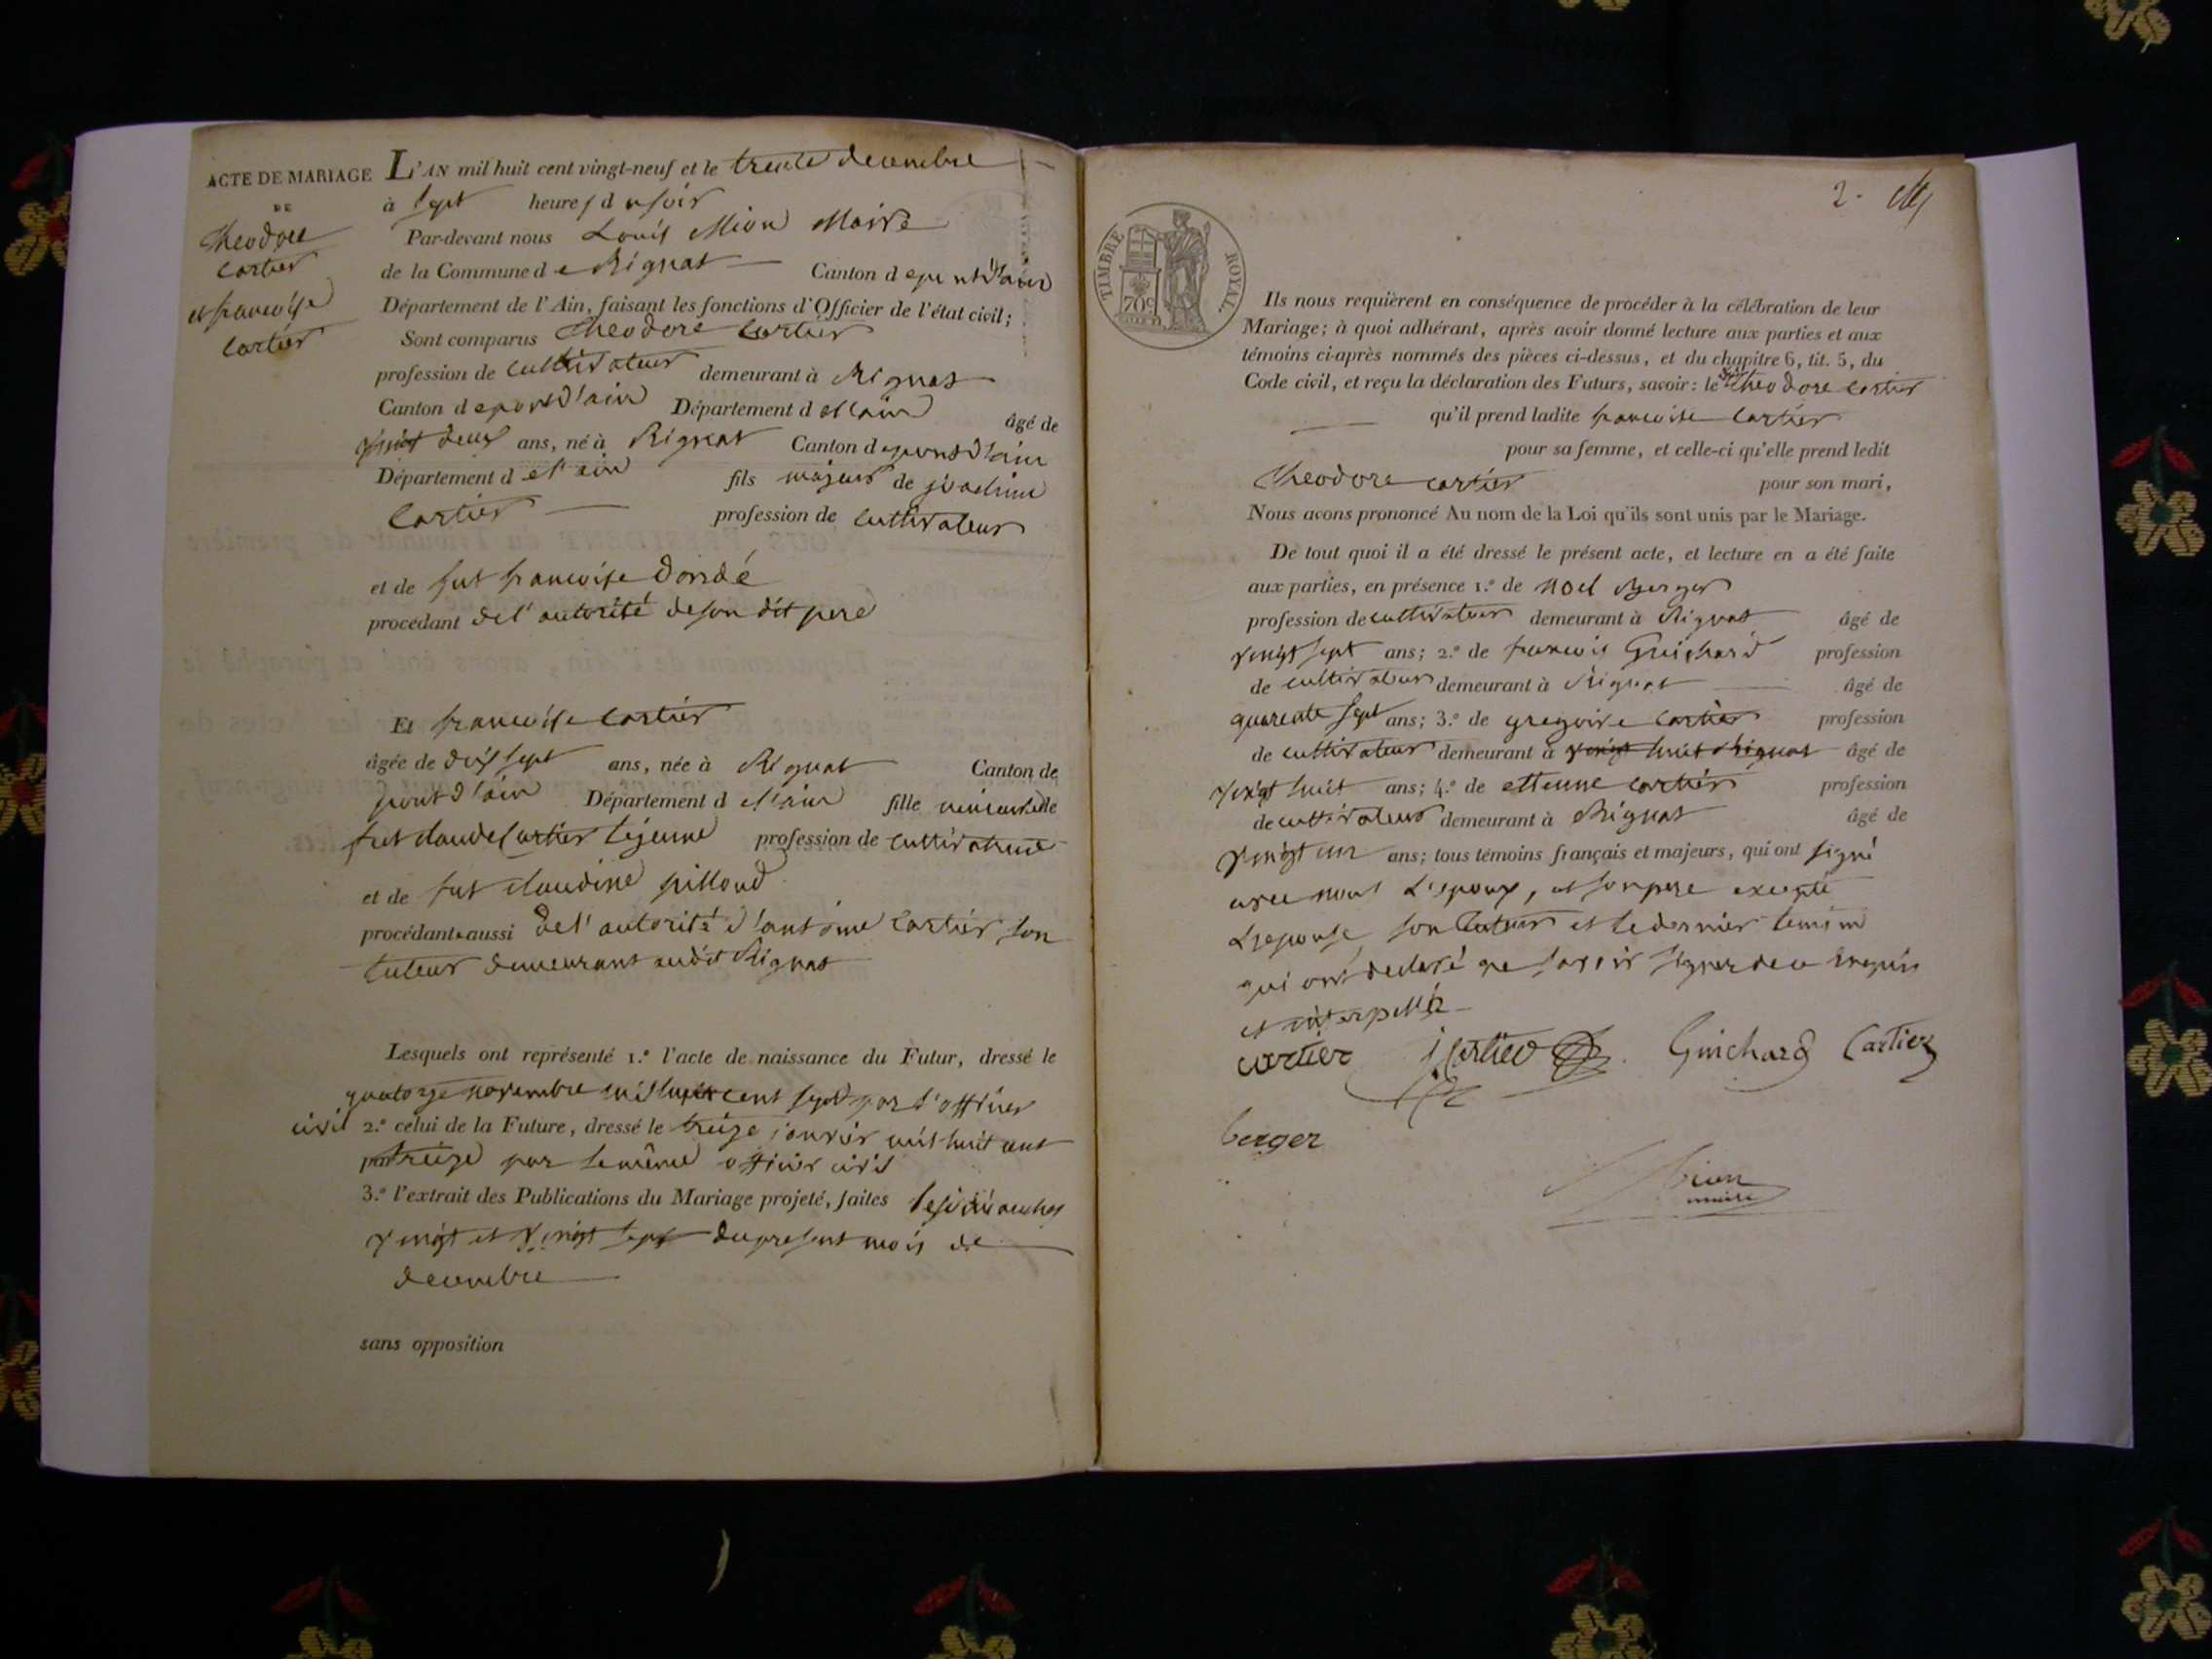 ACTE DE MARIAGE
DE
Theodore
Cartier
et francoise
Cartier
L'AN mil huit cent vingt-neuf et le trente decembre
à sept heures du soir
Par-devant nous Louis Mion Maire
de la Commune de Rignat Canton de pont d'ain
Département de l'Ain, faisant les fonctions d'Officier de l'état civil;
Sont comparus Theodore Cartier
profession de cultivateur demeurant à Rignat
Canton de pont d'ain Département de l'ain âgé de
vingt deux ans, né à Rignat Canton de pont d'ain
Département de l'ain fils majeur de joachim
Cartier profession de cultivateur
et de fut francoise
procédant de l'autorité de son dit pere
Et francoise Cartier
âgée de dix sept ans, née à Rignat Canton de
pont d'ain Département de l'ain fille mineure de
fut claude Cartier lejeune profession de
et de fut claudine pilloud
procédante aussi de l'autorité d'antoine Cartier son
tuteur demeurant audit Rignat
Lesquels ont représenté 1.º l'acte de naissance du Futur, dressé le
quatorze novembre mil huit cent sept par l'officier
civil 2.º celui de la Future, dressé le treize janvier mil huit cent
par treize par le même officier civil
3.º l'extrait des Publications du Mariage projeté, faites les dimanches
vingt et vingt sept du present mois de
decembre
sans opposition
2.
TIMBRE ROYAL.
70c
Ils nous requièrent en conséquence de procéder à la célébration de leur
Mariage; à quoi adhérant, après avoir donné lecture aux parties et aux
témoins ci-après nommés des pièces ci-dessus, et du chapitre 6, tit. 5, du
Code civil, et reçu la déclaration des Futurs, savoir: le dit Theodore Cartier
qu'il prend ladite francoise Cartier
pour sa femme, et celle-ci qu'elle prend ledit
Theodore cartier pour son mari,
Nous avons prononcé Au nom de la Loi qu'ils sont unis par le Mariage.
De tout quoi il a été dressé le présent acte, et lecture en a été faite
aux parties, en présence 1.º de noel Berger
profession de cultivateur demeurant à Rignat âgé de
vingt sept ans; 2.º de francois Guichard profession
de cultivateur demeurant à Rignat âgé de
quarente sept ans; 3.º de gregoire Cartier profession
de cultivateur demeurant à vingt huit Rignat âgé de
vingt huit ans; 4.º de ettienne cartier profession
de cultivateur demeurant à Rignat âgé de
vingt un ans; tous témoins français et majeurs, qui ont signé
avec nous L'epoux, et son pere excepté
L'epouse, son tuteur et le dernier temoin
qui ont declaré ne savoir signer de ce enquis
et interpellé
cartier j Cartier Guichard Cartier
berger
Mion
maire